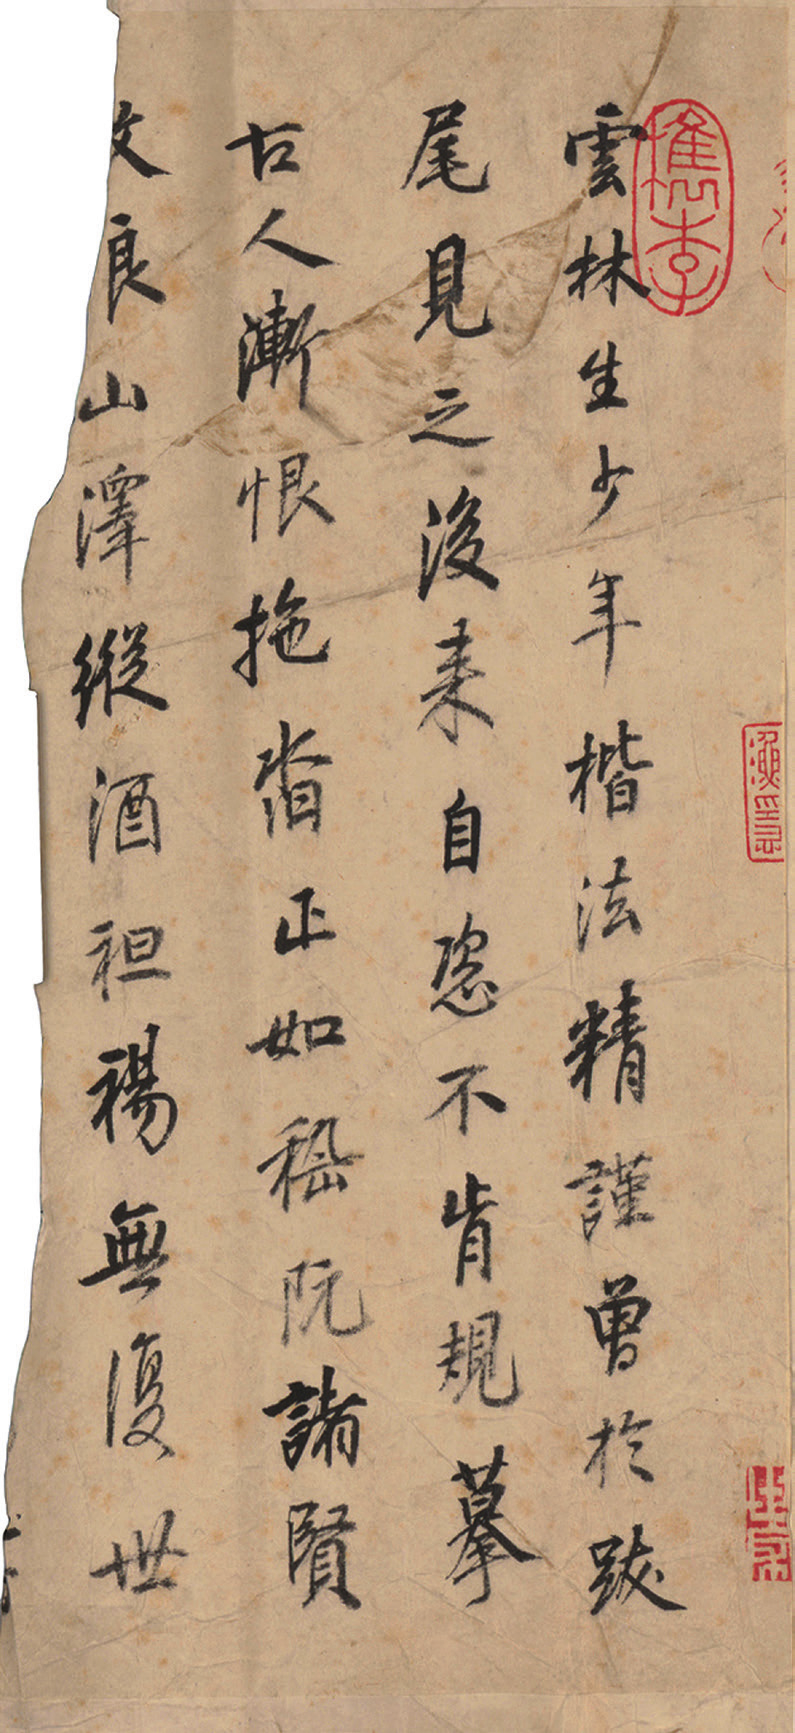 雲林生少年楷法精謹曽於跋
尾見之後来自恣不肯規摹
古人漸恨拖沓正如嵇阮諸賢
放浪山澤縱酒袒裼無復世
檇李